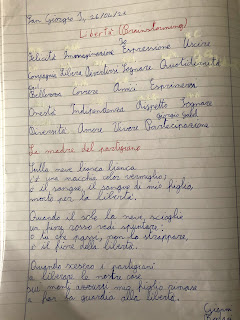 San Giorgio J., 26/04/21
Libertà (Brainstorming)
Felicità Immaginazione Espressione Uscire
Compagnia Futuro Decidere Sognare Quotidianità
Bellezza Correre Amici Esperienza
Onestà Indipendenza Rispetto Sognare
Diversità Amore Vivere Partecipazione
La madre del partigiano
Sulla neve bianca bianca
c'è una macchia color vermiglio;
è il sangue, il sangue di mio figlio,
morto per la libertà.
Quando il sole la neve scioglie
un fiore rosso vedi spuntare:
o tu che passi, non lo strappare,
è il fiore della libertà.
Quando scesero i partigiani
a liberare le nostre case,
sui monti azzurri mio figlio rimase
a far la guardia alla libertà.
Gianni
Rodari